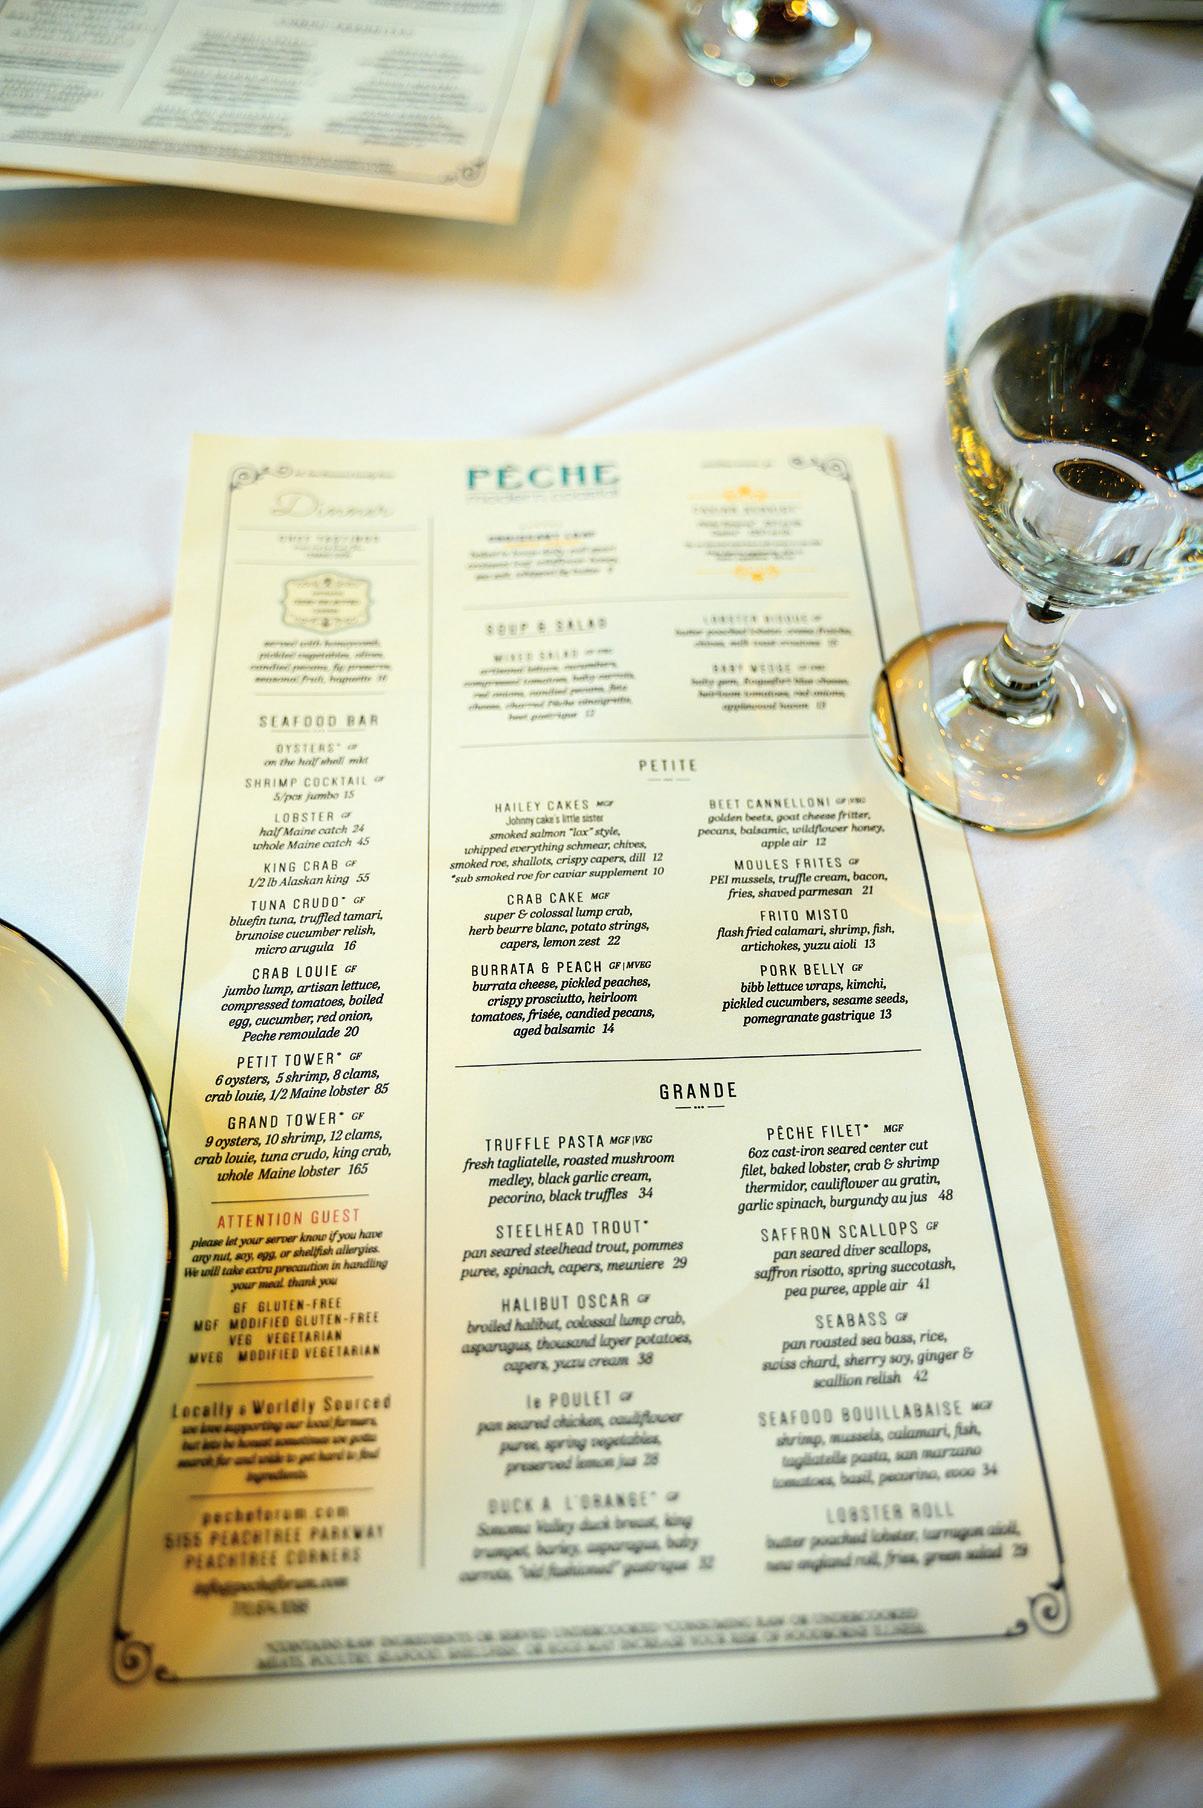 PÊCHE
modern coastal
Dinner
CHEF TASTINGS
served with honeycomb,
pickled vegetables, olives,
candied pecans, fig preserve,
seasonal fruit, baguette
SEAFOOD BAR
OYSTERS* GF
on the half shell mkt
SHRIMP COCKTAIL GF
5/pcs jumbo 15
LOBSTER GF
half Maine catch 24
whole Maine catch 45
KING CRAB GF
1/2 lb Alaskan king 55
TUNA CRUDO* GF
bluefin tuna, truffled tamari,
brunoise cucumber relish,
micro arugula 16
CRAB LOUIE GF
jumbo lump, artisan lettuce,
compressed tomatoes, boiled
egg, cucumber, red onion,
Peche remoulade 20
PETIT TOWER* GF
6 oysters, 5 shrimp, 8 clams,
crab louie, 1/2 Maine lobster 85
GRAND TOWER* GF
9 oysters, 10 shrimp, 12 clams,
crab louie, tuna crudo, king crab,
whole Maine lobster 165
ATTENTION GUEST
please let your server know if you have
any nut, soy, egg, or shellfish allergies.
We will take extra precaution in handling
your meal. thank you
GF GLUTEN-FREE
MGF MODIFIED GLUTEN-FREE
VEG VEGETARIAN
MVEG MODIFIED VEGETARIAN
Locally & Worldly Sourced
we love supporting our local farmers,
but lets be honest sometimes we gotta
search far and wide to get hard to find
ingredients.
pecheforum.com
5155 PEACHTREE PARKWAY
PEACHTREE CORNERS
info@pecheforum.com
SOUP & SALAD
MIXED SALAD
artisanal lettuce, cucumbers,
compressed tomatoes, baby carrots,
red onions, candied pecans, feta
cheese, charred Pêche vinaigrette,
beet gastrique 12
LOBSTER BISQUE
butter poached lobster, creme fraiche,
BABY WEDGE
baby gem, Roquefort blue cheese,
heirloom tomatoes, red onions,
applewood bacon 13
PETITE
HAILEY CAKES MGF
Johnny cake's little sister
smoked salmon "lox" style,
whipped everything schmear, chives,
smoked roe, shallots, crispy capers, dill 12
*sub smoked roe for caviar supplement 10
CRAB CAKE MGF
super & colossal lump crab,
herb beurre blanc, potato strings,
capers, lemon zest 22
BURRATA & PEACH GF|MVEG
burrata cheese, pickled peaches,
crispy prosciutto, heirloom
tomatoes, frisée, candied pecans,
aged balsamic 14
BEET CANNELLONI GF|VEG
golden beets, goat cheese fritter,
pecans, balsamic, wildflower honey,
apple air 12
MOULES FRITES GF
PEI mussels, truffle cream, bacon,
fries, shaved parmesan 21
FRITO MISTO
flash fried calamari, shrimp, fish,
artichokes, yuzu aioli 13
PORK BELLY GF
bibb lettuce wraps, kimchi,
pickled cucumbers, sesame seeds,
pomegranate gastrique 13
GRANDE
TRUFFLE PASTA MGF|VEG
fresh tagliatelle, roasted mushroom
medley, black garlic cream,
pecorino, black truffles 34
STEELHEAD TROUT*
pan seared steelhead trout, pommes
puree, spinach, capers, meuniere 29
HALIBUT OSCAR GF
broiled halibut, colossal lump crab,
asparagus, thousand layer potatoes,
capers, yuzu cream 38
le POULET GF
pan seared chicken, cauliflower
puree, spring vegetables,
preserved lemon jus 28
DUCK A L'ORANGE* GF
Sonoma Valley duck breast, king
trumpet, barley, asparagus, baby
carrots, "old fashioned" gastrique 32
PÊCHE FILET* MGF
6oz cast-iron seared center cut
filet, baked lobster, crab & shrimp
thermidor, cauliflower au gratin,
garlic spinach, burgundy au jus 48
SAFFRON SCALLOPS GF
pan seared diver scallops,
saffron risotto, spring succotash,
pea puree, apple air 41
SEABASS GF
pan roasted sea bass, rice,
swiss chard, sherry soy, ginger &
scallion relish 42
SEAFOOD BOUILLABAISE MGF
shrimp, mussels, calamari, fish,
tagliatelle pasta, san marzano
tomatoes, basil, pecorino, evoo 34
LOBSTER ROLL
butter poached lobster, tarragon aioli,
new england roll, fries, green salad 29
*CONTAINS RAW INGREDIENTS OR SERVED UNDERCOOKED *CONSUMING RAW OR UNDERCOOKED
MEATS, POULTRY, SEAFOOD, SHELLFISH, OR EGGS MAY INCREASE YOUR RISK OF FOODBORNE ILLNESS.